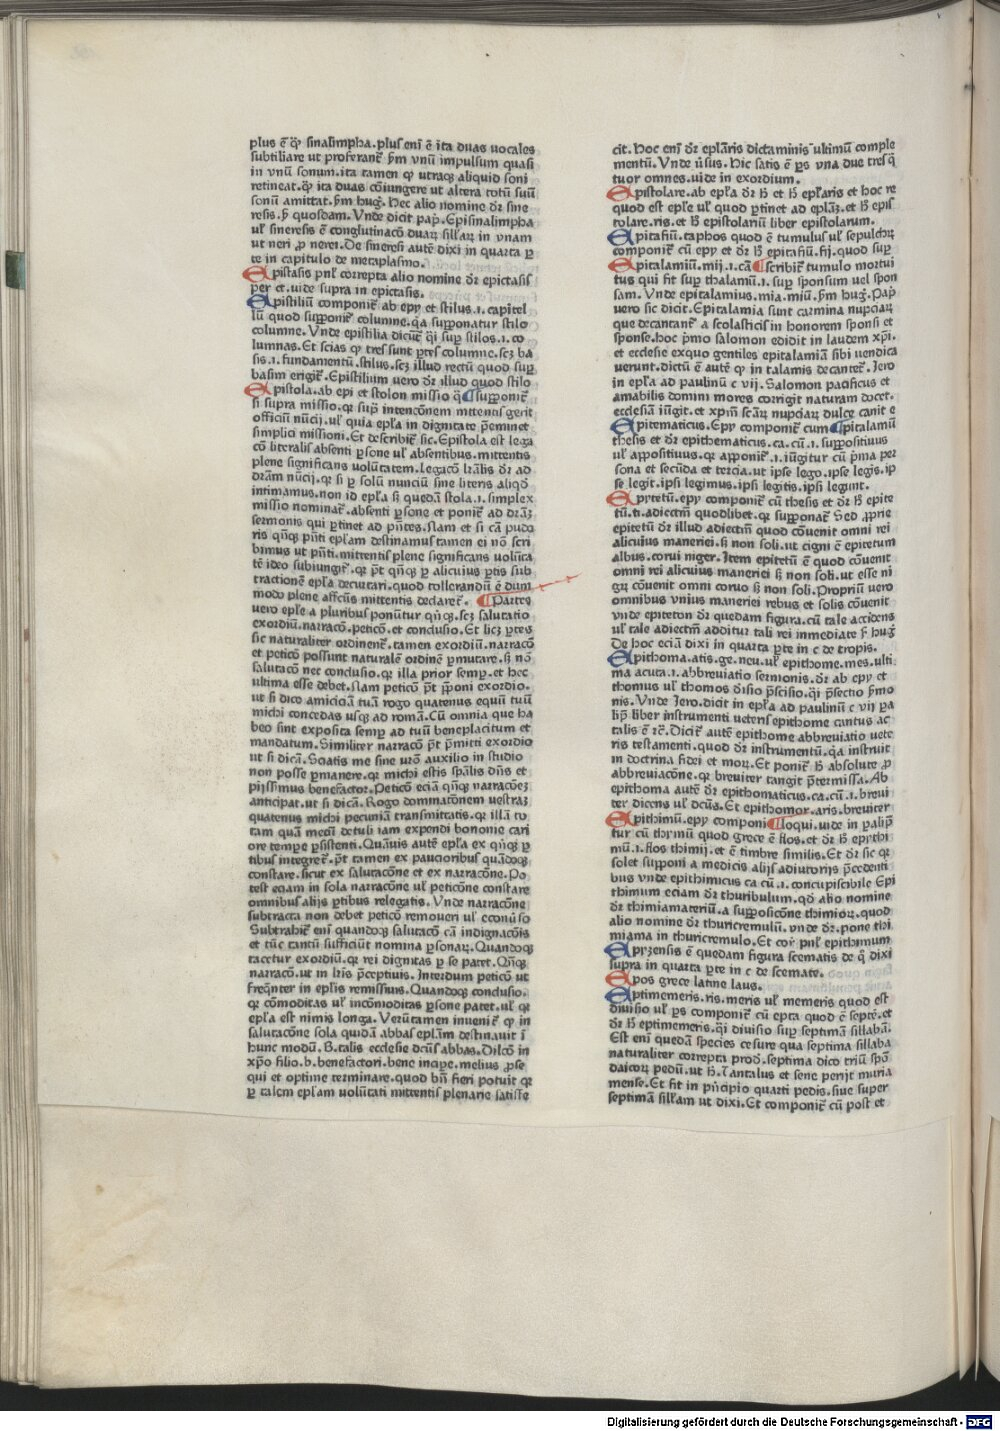 plus ē ꝙ̄ sinalimpha. plus enī ē ita duas vocales
subtiliare ut proferant᷑ ẜm vnū impulsum quasi
in vnū sonum. ita tamen ꝙ utraqꝫ aliquid soni
retineat. ꝙ̄ ita duas cōiungere ut altera totū suū
sonū amittat. ẜm hug. Hec alio nomine dr̄ sine
resis. ẜ quosdam. Vnde dicit pap. Episinalimpha
ul̓ sineresis ē conglutinacō duaꝝ sill̓aꝝ in vnam
ut neri ꝓ nerei. De sineresi autē dixi in quarta ꝑ
te in capitulo de metaplasmo.
Epistasis pnl̓ correpta alio nomine dr̄ epictasis
per ct. uide supra in epictasis.
Epistiliū componit᷑ ab epy et stilus .i. capitel
lū quod supponit᷑ columne. q̄a supponatur stilo
columne. Vnde epistilia dicūt᷑ q̄i suꝑ stilos .i. co
lumnas. Et scias ꝙ tres sunt ꝑtes columne. scꝫ ba
sis .i. fundamentū. stilus. scꝫ illud rectū quod suꝑ
basim erigit᷑. Epistilium vero dr̄ illud quod stilo
Epistola. ab epi et stolon missio q̄ ¶ supponit᷑
si supra missio. qꝛ supͣ intencōnem mittentis gerit
officiū nūcij. ul̓ quia epl̓a in dignitate p̄eminet
simplici missioni. Et describit᷑ sic. Epistola est lega
cō literalis absenti ꝑsone ul̓ absentibus. mittentis
plene significans volūtatem. legacō lr̄alis dr̄ ad
dr̄am nūcij. qꝛ si ꝑ solū nunciū sine literis aliqd̓
intimamus. non id epl̓a sꝫ quedā stola .i. simplex
missio nominat᷑. absenti ꝑsone et ponit᷑ ad dr̄aꝫ
sermonis qui ꝑtinet ad pn̄tes. Nam et si cā pudo
ris qn̄qꝫ pn̄ti epl̓am destinamus tamen ei nō scri
bimus ut pn̄ti. mittentis plene significans volūta
tē ideo subiungit᷑. qꝛ p̄t qn̄qꝫ ꝑ alicuius ꝑtis sub
tractionem epl̓a decurtari. quod tollerandū ē dum
modo plene affcūs mittentis declaret᷑. ¶ Partes
vero epl̓e a pluribus ponūtur qn̄qꝫ. scꝫ salutatio
exordiū. narracō. peticō. et conclusio. Et licꝫ ꝑtes
sic naturaliter ordinent᷑. tamen exordiū. narracō
et peticō possunt naturalē ordinē ꝑmutare. sꝫ nō
salutacō nec conclusio. qꝛ illa prior semꝑ. et hec
ultima esse debet. Nam peticō p̄t p̄poni exordio.
ut si dico amiciciā tuā rogo quatenus equū tuū
michi concedas usqꝫ ad romā. Cū omnia que ha
beo sint exposita semꝑ ad tuū beneplacitum et
mandatum. Similiter narracō p̄t p̄mitti exordio
ut si dicā. Sciatis me sine vr̄o auxilio in studio
non posse ꝑmanere. qꝛ michi estis spālis dn̄s et
pijssimus benefactor. Peticō eciā qn̄qꝫ narracōeꝫ
anticipat. ut si dicā. Rogo dominatōnem vestraꝫ
quatenus michi pecuniā transmittatis. qꝛ illā to
tam quā mecū detuli iam expendi bononie cari
ore tempe ꝑsistenti. Quāuis autē epl̓a ex qn̄qꝫ ꝑ
tibus integret᷑. p̄t tamen ex paucioribus quādoqꝫ
constare. sicut ex salutacōne et ex narracōne. Po
test eciam in sola narracōne ul̓ peticōne constare
omnibus alijs ꝑtibus relegatis. Vnde narracōne
subtracta non debet peticō remoueri ul̓ econūso
Subtrahit᷑ enī quandoqꝫ salutacō cā indignacōis
et tūc tantū sufficiūt nomina ꝑsonaꝝ. Quandoqꝫ
tacetur exordiū. qꝛ rei dignitas ꝑ se patet. Qn̄qꝫ
narracō. ut in lr̄is p̄ceptiuis. Interdum peticō ut
freqn̄ter in epl̓is remissiuis. Quandoqꝫ conclusio.
qꝛ cōmoditas ul̓ incōmoditas ꝑsone patet. ul̓ qꝛ
epl̓a est nimis longa. Verūtamen inuenit᷑ ꝙ in
salutacōne sola quidā abbas epl̓am destinauit ī
hunc modū. B. talis ecclesie dcūs abbas. Dilcō in
xp̄o filio. b. benefactori. bene incipe. melius ꝓse
qui et optime terminare. quod bn̄ fieri potuit qꝛ
ꝑ talem epl̓am volūtati mittentis plenarie satisfe
cit. Hoc enī dr̄ epl̓aris dictaminis ultimū comple
mentū. Vnde ūsus. Hic satis ē ꝑs vna due tres q̄
tuor omnes. uide in exordium.
Epistolare. ab epl̓a dr̄ h̄ et h̄ epl̓aris et hoc re
quod est epl̓e ul̓ quod ꝑtinet ad epl̓aꝫ. et h̄ epis
tolare. ris. et h̄ epistolariū liber epistolarum.
Epitafiū. taphos quod ē tumulus ul̓ sepulchꝝ
componit᷑ cū epy et dr̄ h̄ epitafiū. fij. quod suꝑ
Epitalamiū. mij .i. cā ¶ scribit᷑ tumulo mortui
tus qui fit suꝑ thalamū .i. suꝑ sponsum uel spon
sam. Vnde epitalamius. mia. miū. ẜm hug. Pap
vero sic dicit. Epitalamia sunt carmina nupciaꝝ
que decantant᷑ a scolasticis in honorem sponsi et
sponse. hoc pͥmo salomon edidit in laudem xp̄i.
et ecclesie exquo gentiles epitalamiā sibi uendica
uerunt. dictū ē autē ꝙ in talamis decantet᷑. Jero
in epl̓a ad paulinū c vij. Salomon pacificus et
amabilis domini mores corrigit naturam docet.
ecclesiā iūgit. et xpm̄ scāꝝ nupciaꝝ dulce canit e
Epitematicus. Epy componit᷑ cum ¶ pitalamiū
thesis et dr̄ epithematicus. ca. cū .i. suppositiuus
ul̓ appositiuus. qꝛ apponit᷑ .i. iūgitur cū pͥma per
sona et secūda et tercia. ut ipse lego. ipse legis. ip
se legit. ipsi legimus. ipsi legitis. ipsi legunt.
Epytetū. epy componit᷑ cū thesis et dr̄ h̄ epite
tū. ti. adiectm̄ quodlibet. qꝛ supponat᷑ Sed ꝓprie
epitetū dr̄ illud adiectm̄ quod cōuenit omni rei
alicuius maneriei. sꝫ non soli. ut cigni ē epitetum
albus. corui niger. Item epitetū ē quod cōuenit
omni rei alicuius maneriei sꝫ non soli. ut esse ni
grꝫ cōuenit omni coruo sꝫ non soli. Propriū vero
omnibus vnius maneriei rebus et solis cōuenit
vnde epiteton dr̄ quedam figura. cū tale accidens
ul̓ tale adiectm̄ additur tali rei immediate ẜ hug
De hoc eciā dixi in quarta ꝑte in c de tropis.
Epithoma. atis. ge. neu. ul̓ epithome. mes. ulti
ma acuta .i. abbreuiatio sermonis. dr̄ ab epy et
thomus ul̓ thomos diūsio p̄scisio. q̄i p̄sectio ẜmo
nis. Vnde Jero. dicit in epl̓a ad pauliniū c vij ꝑa
lip̄ liber instrumenti ueteris epithome tantus ac
talis ē rc̄. Dicit᷑ autē epithome abbreuiatio uete
ris testamenti. quod dr̄ instrumentū. q̄a instruit
in doctrina fidei et moꝝ. Et ponit᷑ h̄ absolute ꝓ
abbreuiacōne. qꝛ breuiter tangit p̄termissa. Ab
epithoma autē dr̄ epithomaticus. ca. cū .i. breui
ter dicens ul̓ dcūs. Et epithomor. aris. breuiter
Epithimū. epy componi ¶ loqui. uide in ꝑalip̄
tur cū thymū quod grece ē flos. et dr̄ h̄ epythi
mū .i. flos thimij. et ē timbre similis. Et dr̄ sic qꝛ
solet supponi a medicis alijs adiutorijs p̄cedenti
bus vnde epithimicus ca cū .i. concupiscibile Epi
thimum eciam dr̄ thuribulum. qd̓ alio nomine
dr̄ thimiamateriū. a supposicōne thimioꝝ. quod
alio nomine dr̄ thuricremulū. vnde dr̄. pone thi
miama in thuricremulo. Et cor᷑ pnl̓ epithimum
Epyzensis ē quedam figura scematis de q̄ dixi
supra in quarta ꝑte in c de scemate.
Epos grece latine laus.
Eptimemeris. ris. meris ul̓ memeris quod est
diuisio ul̓ ꝑs componit᷑ cū epta quod ē septē. et
dr̄ h̄ eptimemeris. q̄i diuisio suꝑ septimā sillabā.
Est enī quedam species cesure qua septima sillaba
naturaliter correpta prod. septima dico triū spō
daicoꝝ pedū. ut h̄. Tantalus et sene perijt muria
mense. Et fit in pͥncipio quarti pedis. siue super
septimā sill̓am ut dixi. Et componit᷑ cū post et
Digitalisierung gefördert durch die Deutsche Forschungsgemeinschaft - DFG